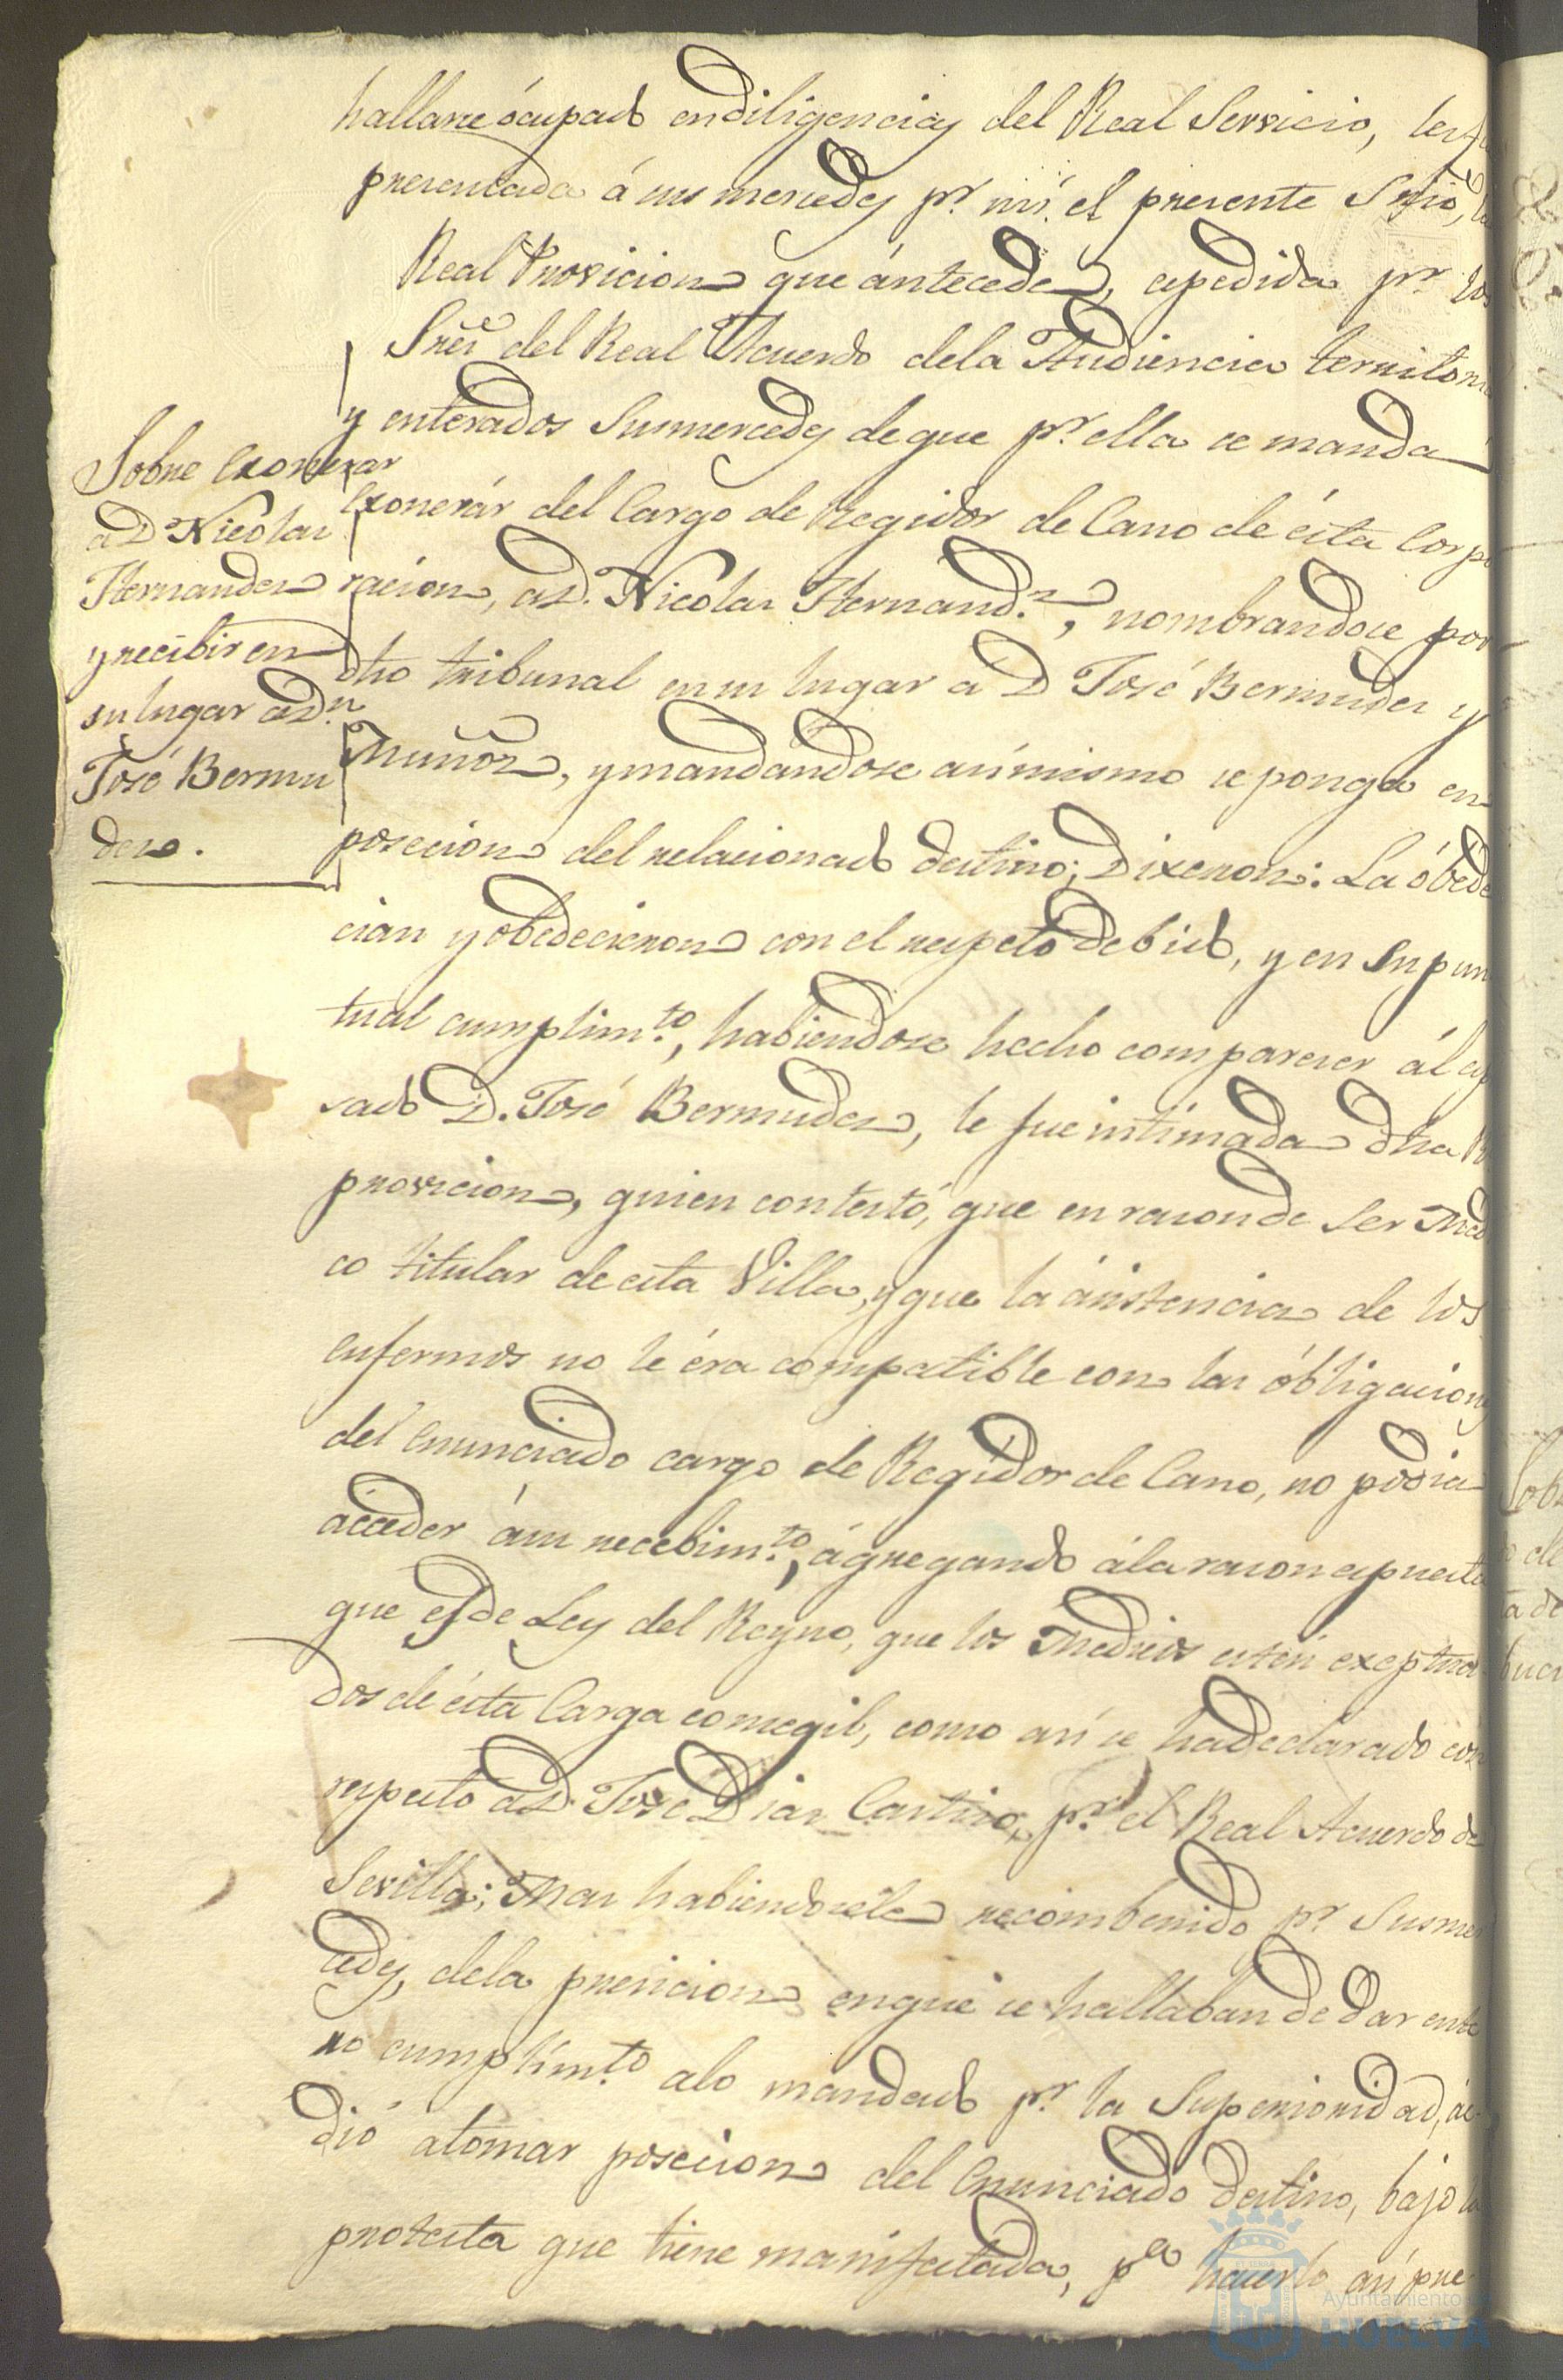 hallarse ócupado en diligencias del Real Servicio, les fu
presentada á sus mercedes pr. mi el presente Srio, la
Real Provicion que ántecede, espedida pr. los
Sres del Real Acuerdo dela Audiencia territori
y enterados Susmercedes de que pr. ella se manda
Exonerár del Cargo de Regidor de Cano de ésta Corpo
racion, a D. Nicolas Hernandz., nombrandose por
dho tribunal en su lugar a D José Bermudez y
Muñoz, y mandandose asimismo se ponga en
posecion del relacionado destino; Dixeron: La óbede
cian y obedecieron con el respeto debido, y en Su pun
tual cumplimto., habiendose hecho comparecer ál es
sado D. José Bermudez, le fue intimada dha R
provicion, quien contestó, que en rason de Ser Medi
co titular de esta Villa, y que la ásistencia de los
enfermos no le éra compatible con las óbligaciones
del Enunciado cargo de Regidor de Cano, no podia
ácceder á su recebimto., ágregando á la rason espuesta
que es de Ley del Reyno, que los Medicos estén exceptua
dos de ésta Carga consegil, como asi se ha declarado con
respecto a D. José Diaz Castizo, pr. el Real Acuerdo de
Sevilla; Mas habiendosele recombenido pr. Susmer
cedes, dela presicion en que se hallaban de dar ente
ro cumplimto. alo mandado pr. la Superioridad, ác
dió a tomar posecion del Enunciado destino, bajo la
protesta que tiene manifestada, pa. hacerlo asi pre
Sobre Exonerar
a D Nicolas
Hernandez
y recibir en
su lugar a Dn.
José Bermu
dez.
Ayuntamiento de
HUELVA